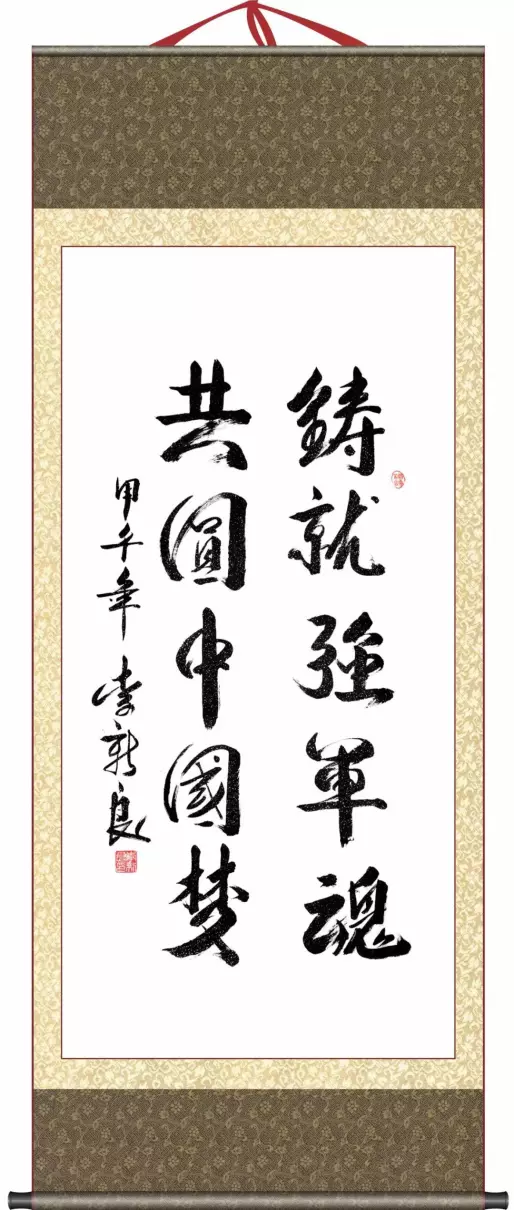 鋳就強軍魂
共圓中國梦
甲午年 李新良